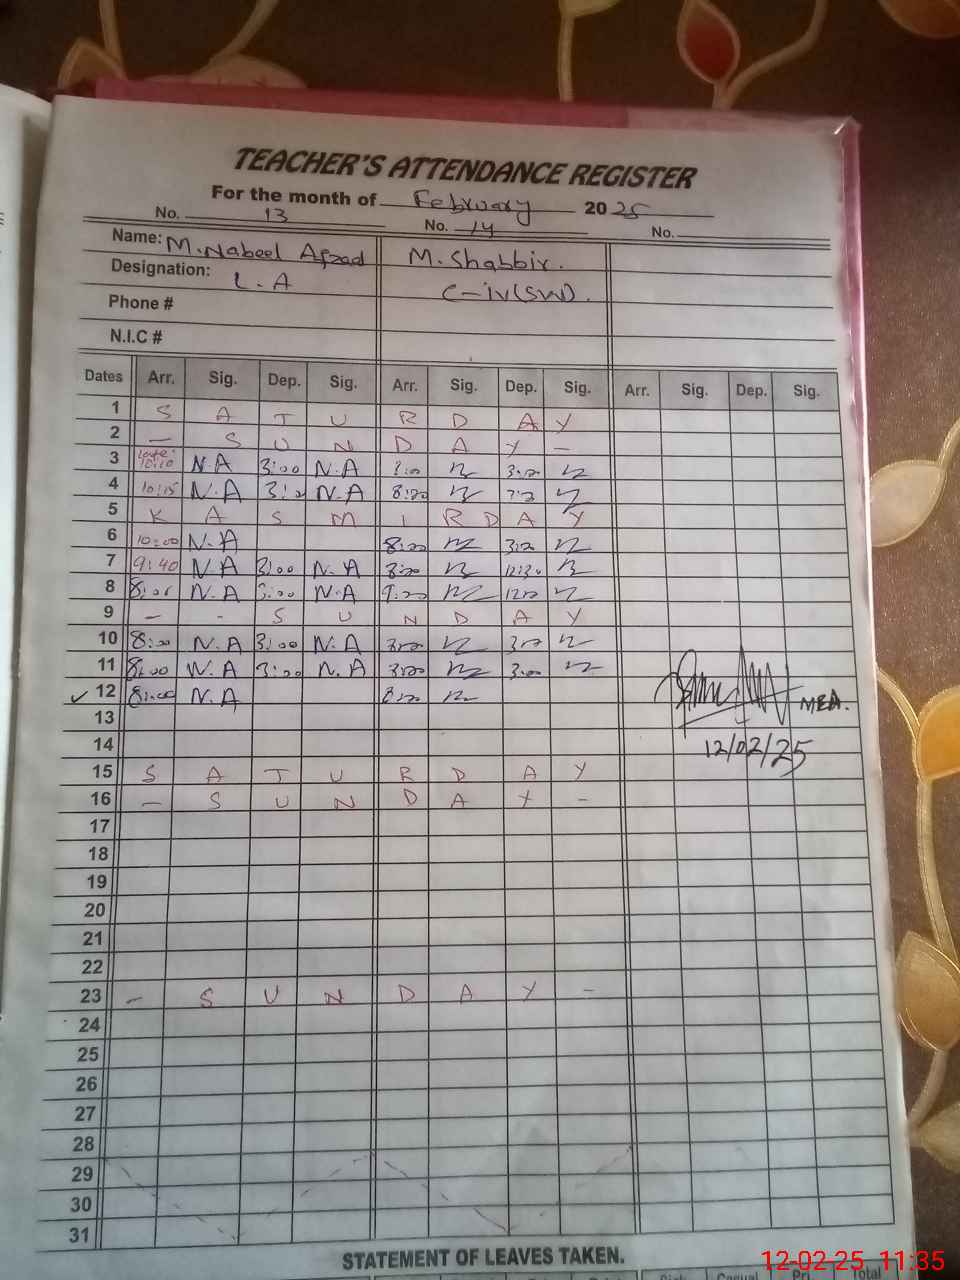 TEACHER'S ATTENDANCE REGISTER
For the month of February 2025
No. 13 No. 14 No.
Name: M. Nabeel Afzaal M. Shabbir.
Designation: L.A C-iv(SW).
Phone #
N.I.C #
Dates Arr. Sig. Dep. Sig. Arr. Sig. Dep. Sig. Arr. Sig. Dep. Sig.
1 S A T U R D A Y
2 – S U N D A Y –
3 Late: 10:10 N.A 3:00 N.A
4 10:15 N.A N.A 8:00
5 K A S M I R D A Y
6 10:00 N.A 8:00 3:00
7 9:40 N.A 3:00 N.A 8:00 12:30
8 N.A 3:00 N.A
9 – - S U N D A Y
10 8:00 N.A 3:00 N.A 3:00
11 8:00 N.A 3:00 N.A 3:00
✓ 12 8:00 N.A 8:00
MEA.
13
12/02/25
14
15 S A T U R D A Y
16 – S U N D A Y –
17
18
19
20
21
22
23 – S U N D A Y –
24
25
26
27
28
29
30
31
STATEMENT OF LEAVES TAKEN.
Total
12-02-25 11:35